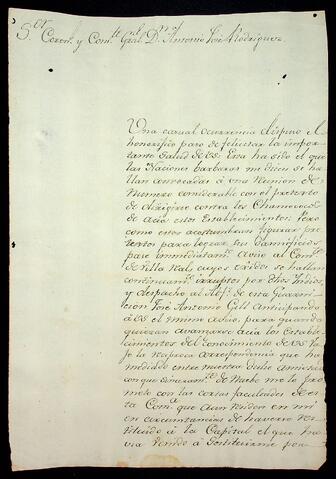 S.or Coron.l y Com.te Gral D.n Antonio José Rodriguez
Una casual ocurrencia dispuso el
honorifico paso de felicitar la impor
tante salud de VS: Esta ha sido el que
las Naciones barbaras me dicen se ha
llan convocadas á una reunion de
Numero considerable con el pretexto
de dirigirse contra los Chamococos
de acia estos Establecimientos: Pero
como estos acostumbran figurar pre
textos para lograr sus
pase inmediatam.te aviso al Com.te
de Villa Real, cuyos se hallan
continuam.te por dhos Indios,
y despacho al Alf.z de esta Guarni
cion José Antonio Gill Anticipando
á VS el mismo aviso, para quando
quieran avanzarse acia los Estable
cimientos del conocimiento de VS. Ba
jo la correspondencia que ha
mediado entre nuestra dulce amistad
con que de Nuebo me lo pro
meto con las cortas facultades de es
ta Com.a que aun residen en mi
en circunstancias de haverse res
tituido á la Capital el que ha
via venido á sostituirme por